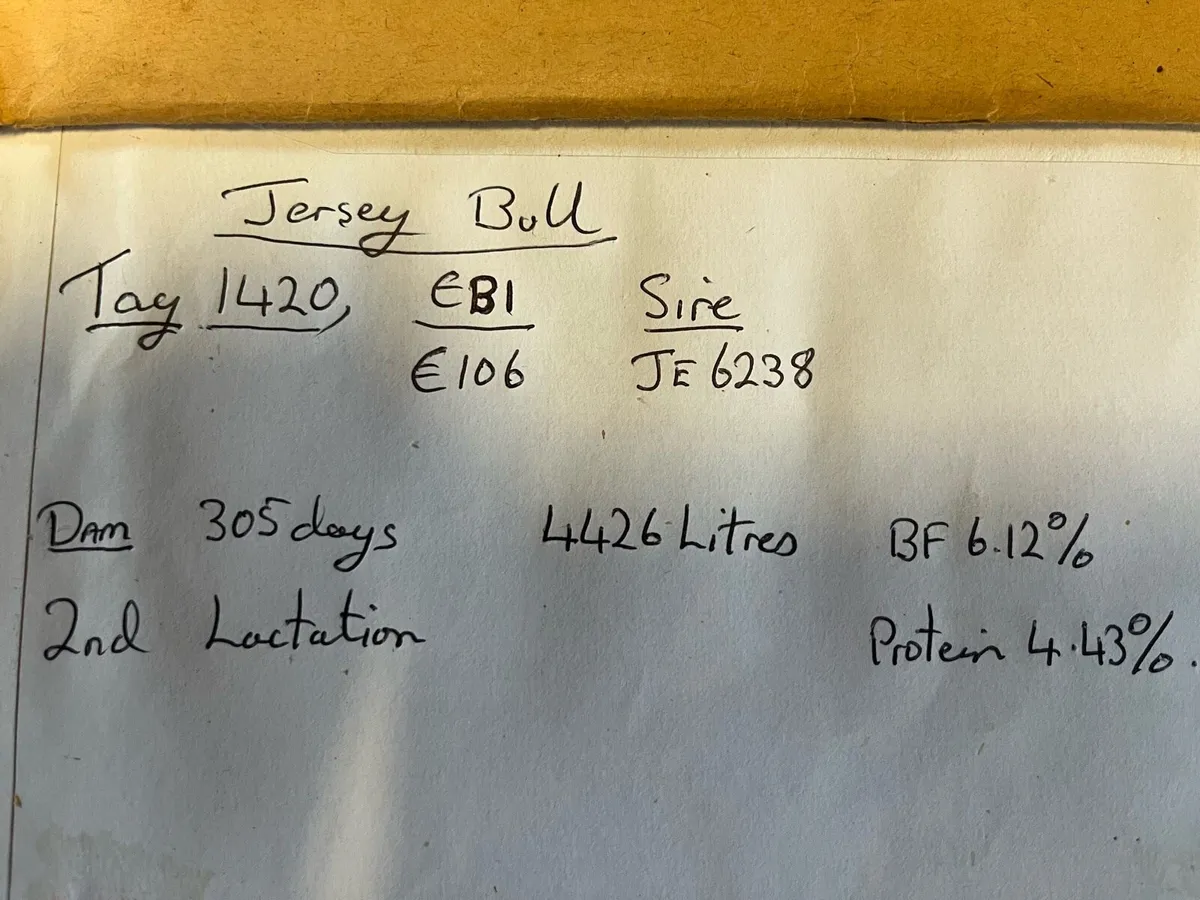 Jersey Bull
Tag 1420, EBI Sire
€106 JE 6238
Dam 305 days 4426 Litres BF 6.12%
2nd Lactation Protein 4.43%.